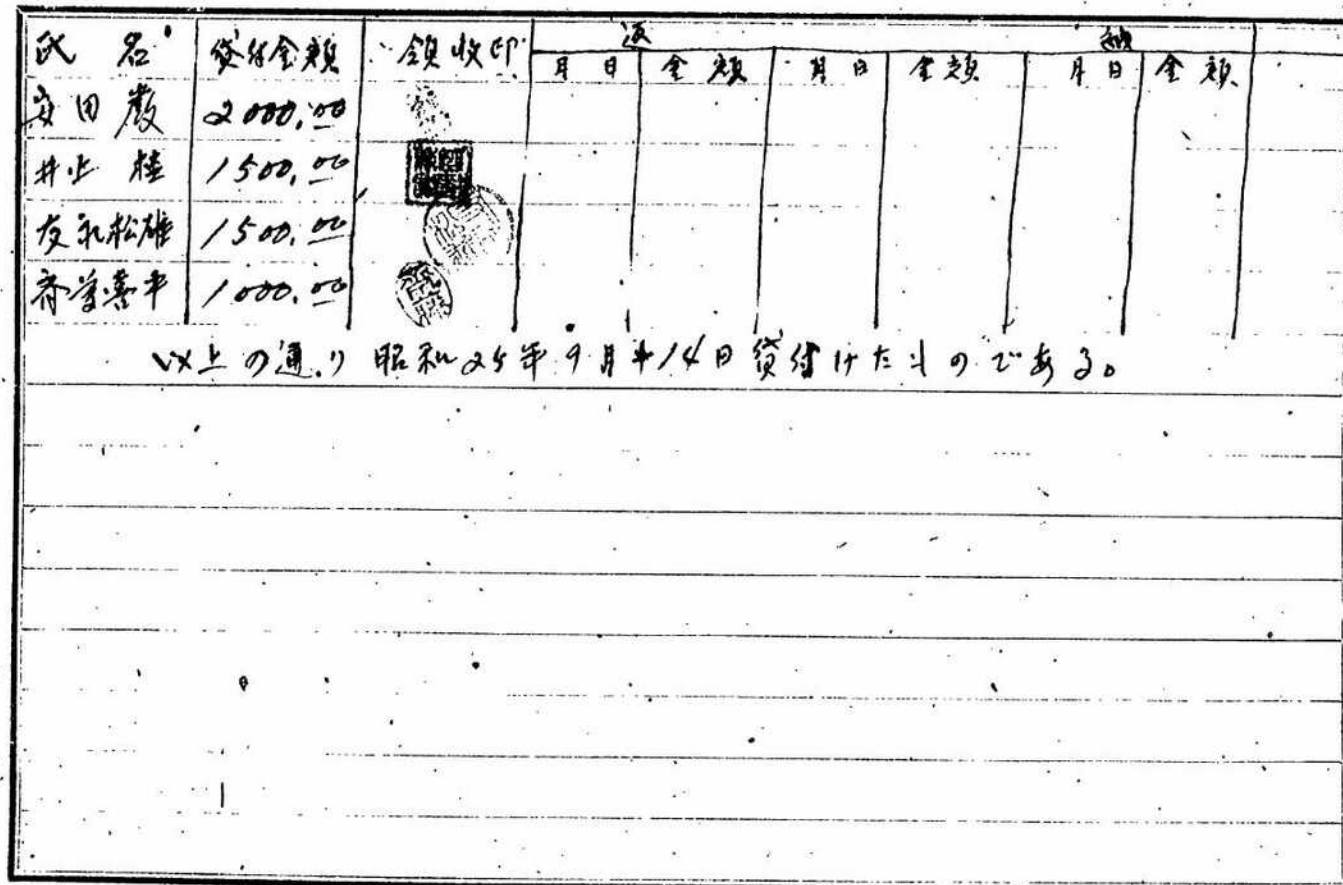 氏名 貸付金額 領収印 返 納
月日 金額 月日 金額 月日 金額
安田 巌 2000.00
井上 桂 1500.00
友永松雄 1500.00
斉藤喜平 1000.00
以上の通り昭和25年9月14日貸付けたものである。